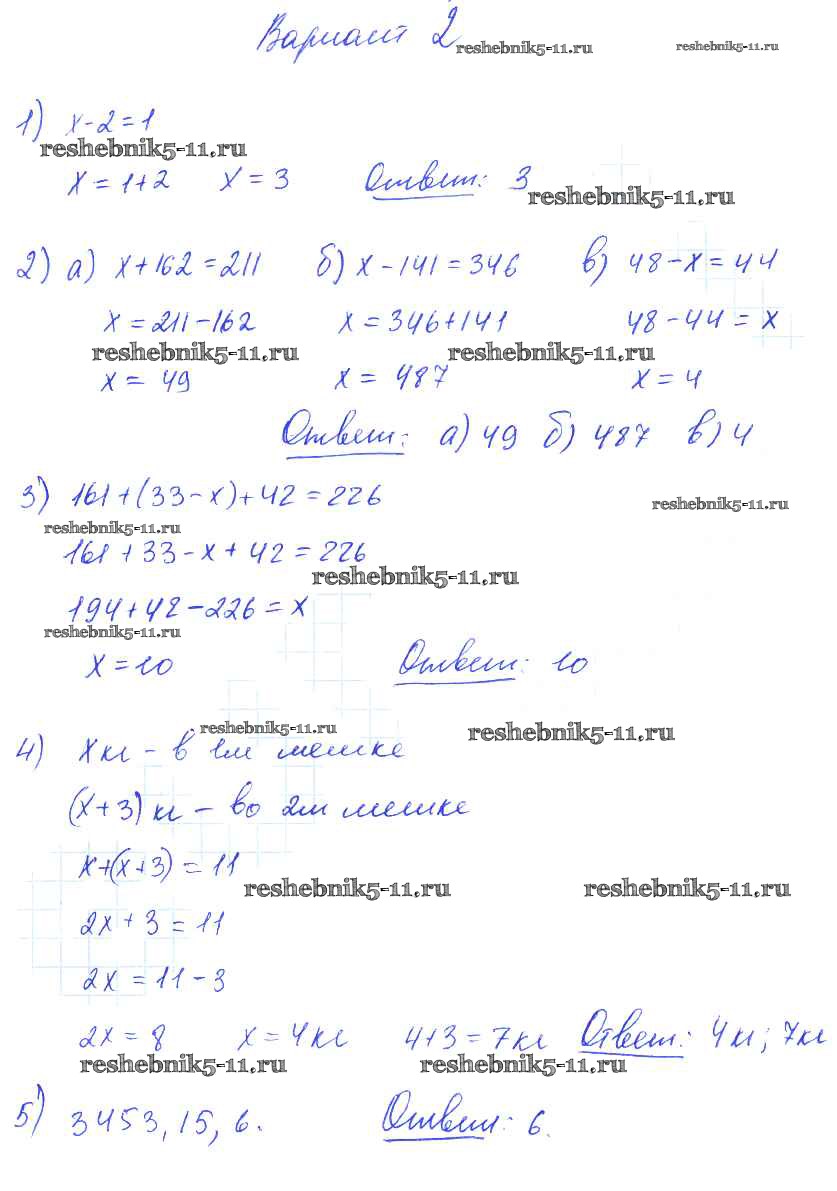 Вариант 2
reshebnik5-11.ru reshebnik5-11.ru
1) x-2=1
reshebnik5-11.ru
x=1+2 x=3 Ответ: 3
reshebnik5-11.ru
2) а) x+162=211 б) x-141=346 в) 48-x=44
x=211-162 x=346+141 48-44=x
reshebnik5-11.ru reshebnik5-11.ru
x= 49 x= 487 x=4
Ответ: а) 49 б) 487 в) 4
3) 161+(33-x)+42=226
reshebnik5-11.ru reshebnik5-11.ru
161+33-x+42=226
reshebnik5-11.ru
194+42-226=x
reshebnik5-11.ru
x=10 Ответ: 10
reshebnik5-11.ru reshebnik5-11.ru
4) x кг - в 1м мешке
(x+3) кг - во 2м мешке
x+(x+3)=11
reshebnik5-11.ru reshebnik5-11.ru
2x+3=11
2x=11-3
2x=8 x=4кг 4+3=7кг Ответ: 4кг; 7кг
reshebnik5-11.ru reshebnik5-11.ru
5) 3453, 15, 6. Ответ: 6.